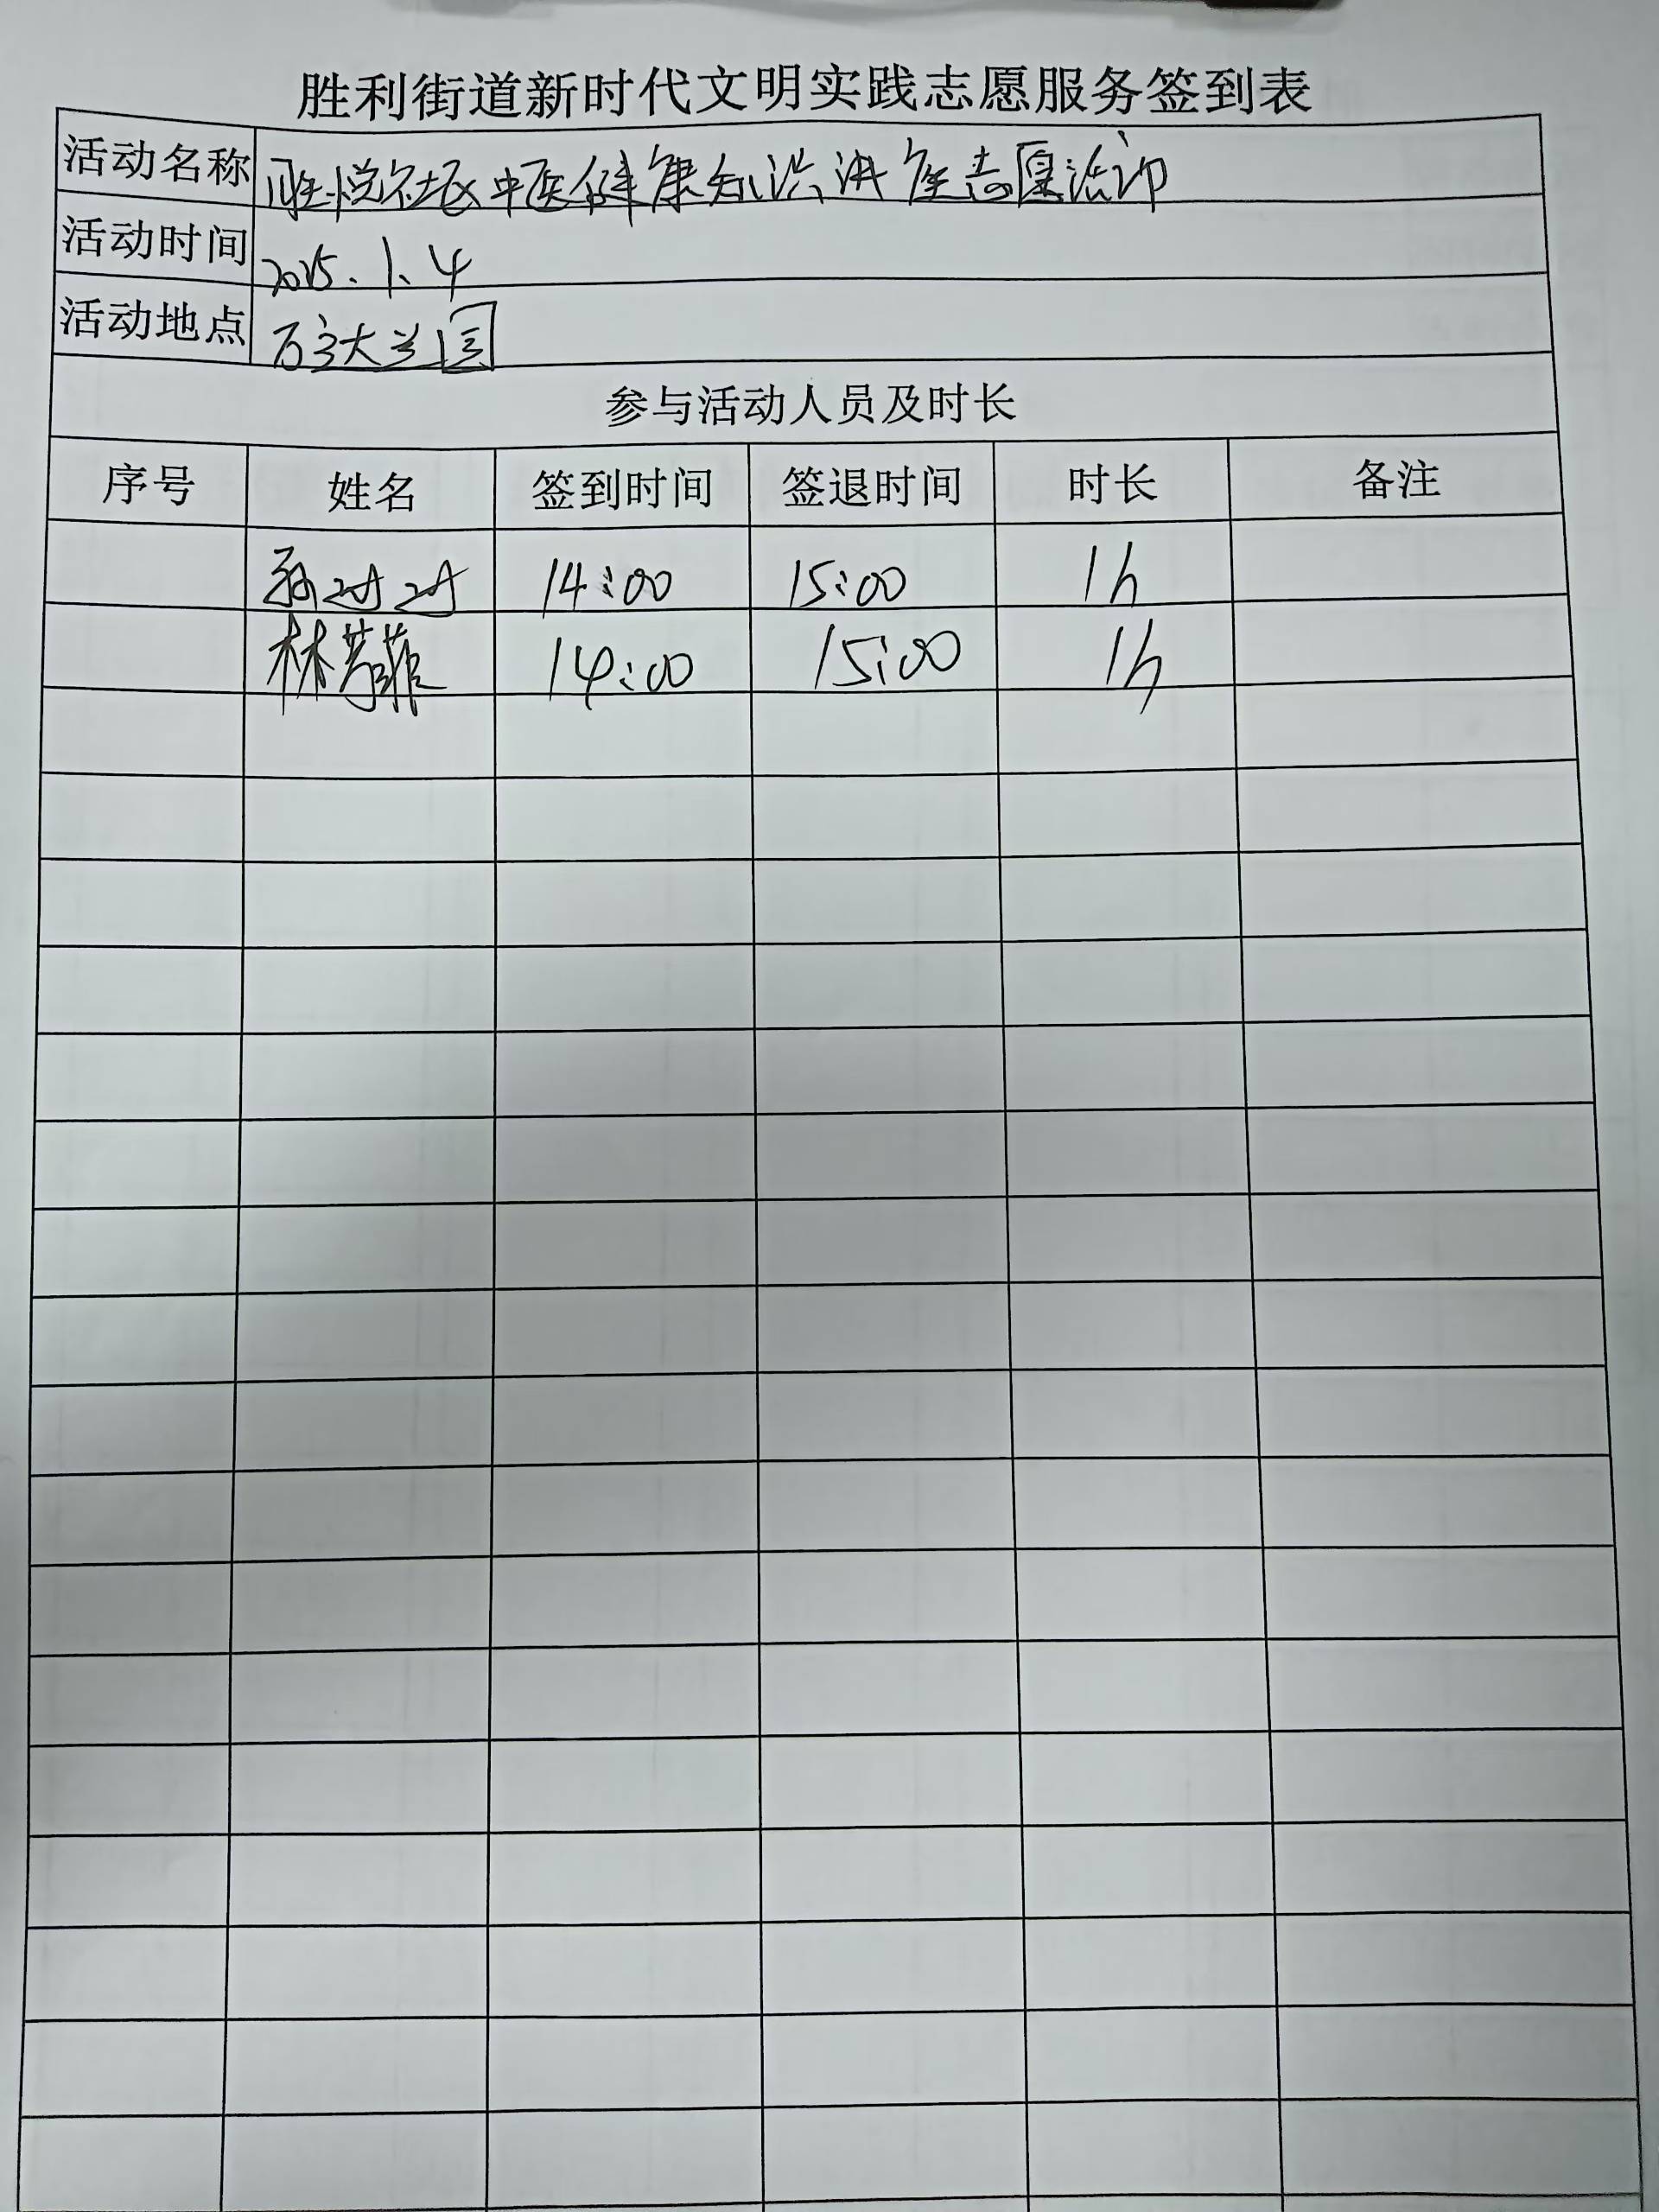 胜利街道新时代文明实践志愿服务签到表
活动名称 胜悦社区中医健康知识讲座志愿活动
活动时间 2025.1.4
活动地点 万方大兰园
参与活动人员及时长
序号 姓名 签到时间 签退时间 时长 备注
孙过过 14:00 15:00 1h
林芳菲 14:00 15:00 1h